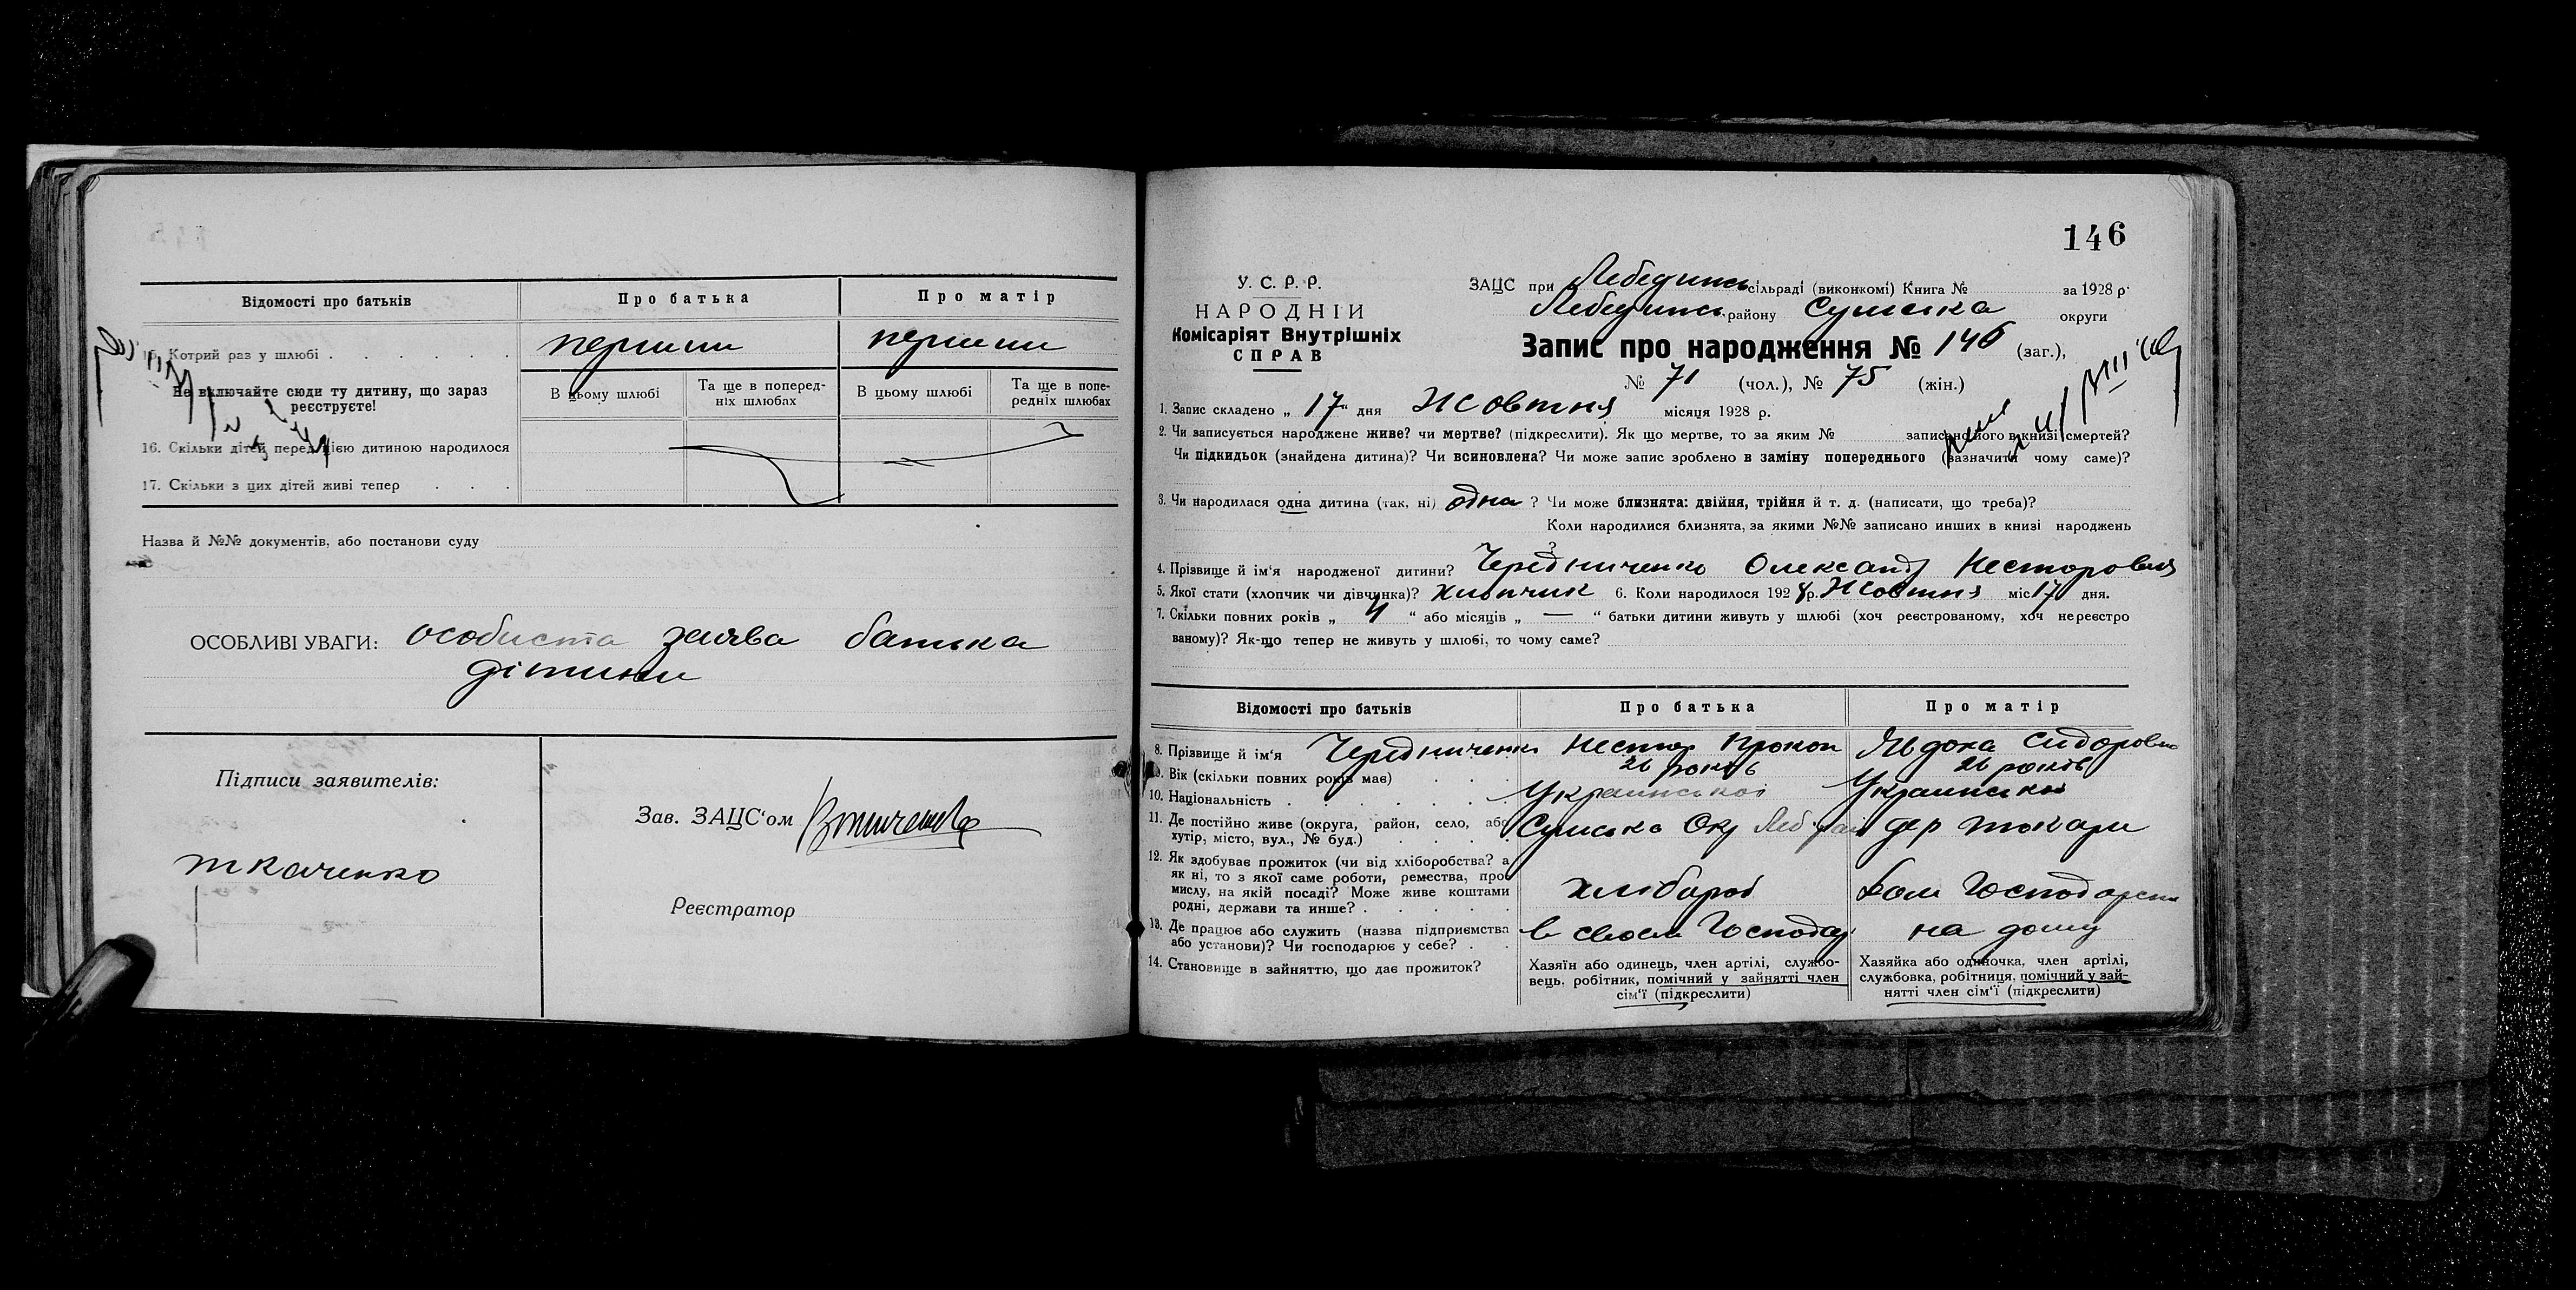 Відомості про батьків
Про батька
Про матір
15. Котрий раз у шлюбі
перший
перший
Не включайте сюди ту дитину, що зараз
реєструєте!
В цьому шлюбі
Та ще в поперед-
ніх шлюбах
В цьому шлюбі
Та ще в попе-
редніх шлюбах
16. Скільки дітей перед цією дитиною народилося
17. Скільки з цих дітей живі тепер
Назва й №№ документів, або постанови суду
ОСОБЛИВІ УВАГИ: особиста заява батька
дітини
Підписи заявителів:
Ткаченко
Зав. ЗАЦС'ом
Реєстратор
146
У. С. Р. Р.
НАРОДНІЙ
Комісаріят Внутрішніх
СПРАВ
ЗАЦС при Лебединсь сільраді (виконкомі) Книга № за 1928 р.
Лебединсь району Сумська округи
Запис про народження № 146 (заг.),
№ 71 (чол.), № 75 (жін.)
1. Запис складено „ 17 “ дня Жовтня місяця 1928 р.
2. Чи записується народжене живе? чи мертве? (підкреслити). Як що мертве, то за яким № записано його в книзі смертей?
Чи підкидьок (знайдена дитина)? Чи всиновлена? Чи може запис зроблено в заміну попереднього (зазначити чому саме)?
3. Чи народилася одна дитина (так, ні) одна ? Чи може близнята: двійня, трійня й т. д. (написати, що треба)?
Коли народилися близнята, за якими №№ записано инших в книзі народжень
4. Прізвище й ім'я народженої дитини? Чередниченко Олександ Несторович
5. Якої стати (хлопчик чи дівчинка)? хлопчик 6. Коли народилося 1928 р. Жовтня міс 17 дня.
7. Скільки повних років „ 4 “ або місяців „ — “ батьки дитини живуть у шлюбі (хоч реєстрованому, хоч нереєстро
ваному)? Як-що тепер не живуть у шлюбі, то чому саме?
Відомості про батьків
Про батька
Про матір
8. Прізвище й ім'я Чередниченки Нестор Прокоп Явдоха Сидоровна
9. Вік (скільки повних років має) 26 років 26 років
10. Національність Украинської Украинська
11. Де постійно живе (округа, район, село, або
хутір, місто, вул., № буд.)
Сумська Окр Леб рай дер Токари
12. Як здобуває прожиток (чи від хліборобства? а
як ні, то з якої саме роботи, ремества, про
мислу, на якій посаді? Може живе коштами
родні, держави та инше?
хлібороб
Дом Господарств
13. Де працює або служить (назва підприємства
або установи)? Чи господарює у себе?
в своєм Господар
на дому
14. Становище в зайняттю, що дає прожиток?
Хазяїн або одинець, член артілі, службо-
вець, робітник, помічний у зайнятті член
сім'ї (підкреслити)
Хазяйка або одиночка, член артілі,
службовка, робітниця, помічний у зай-
нятті член сім'ї (підкреслити)